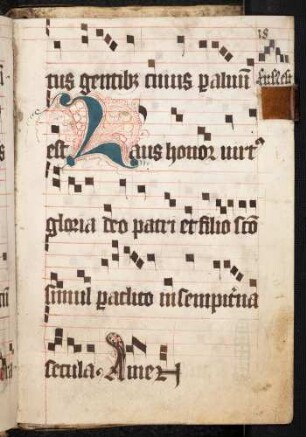 18
tus gentibꝫ cuius
est Laus honor uirt
gloria deo patri et filio sc̄o
simul paclito in sempit͛na
secula. Amen